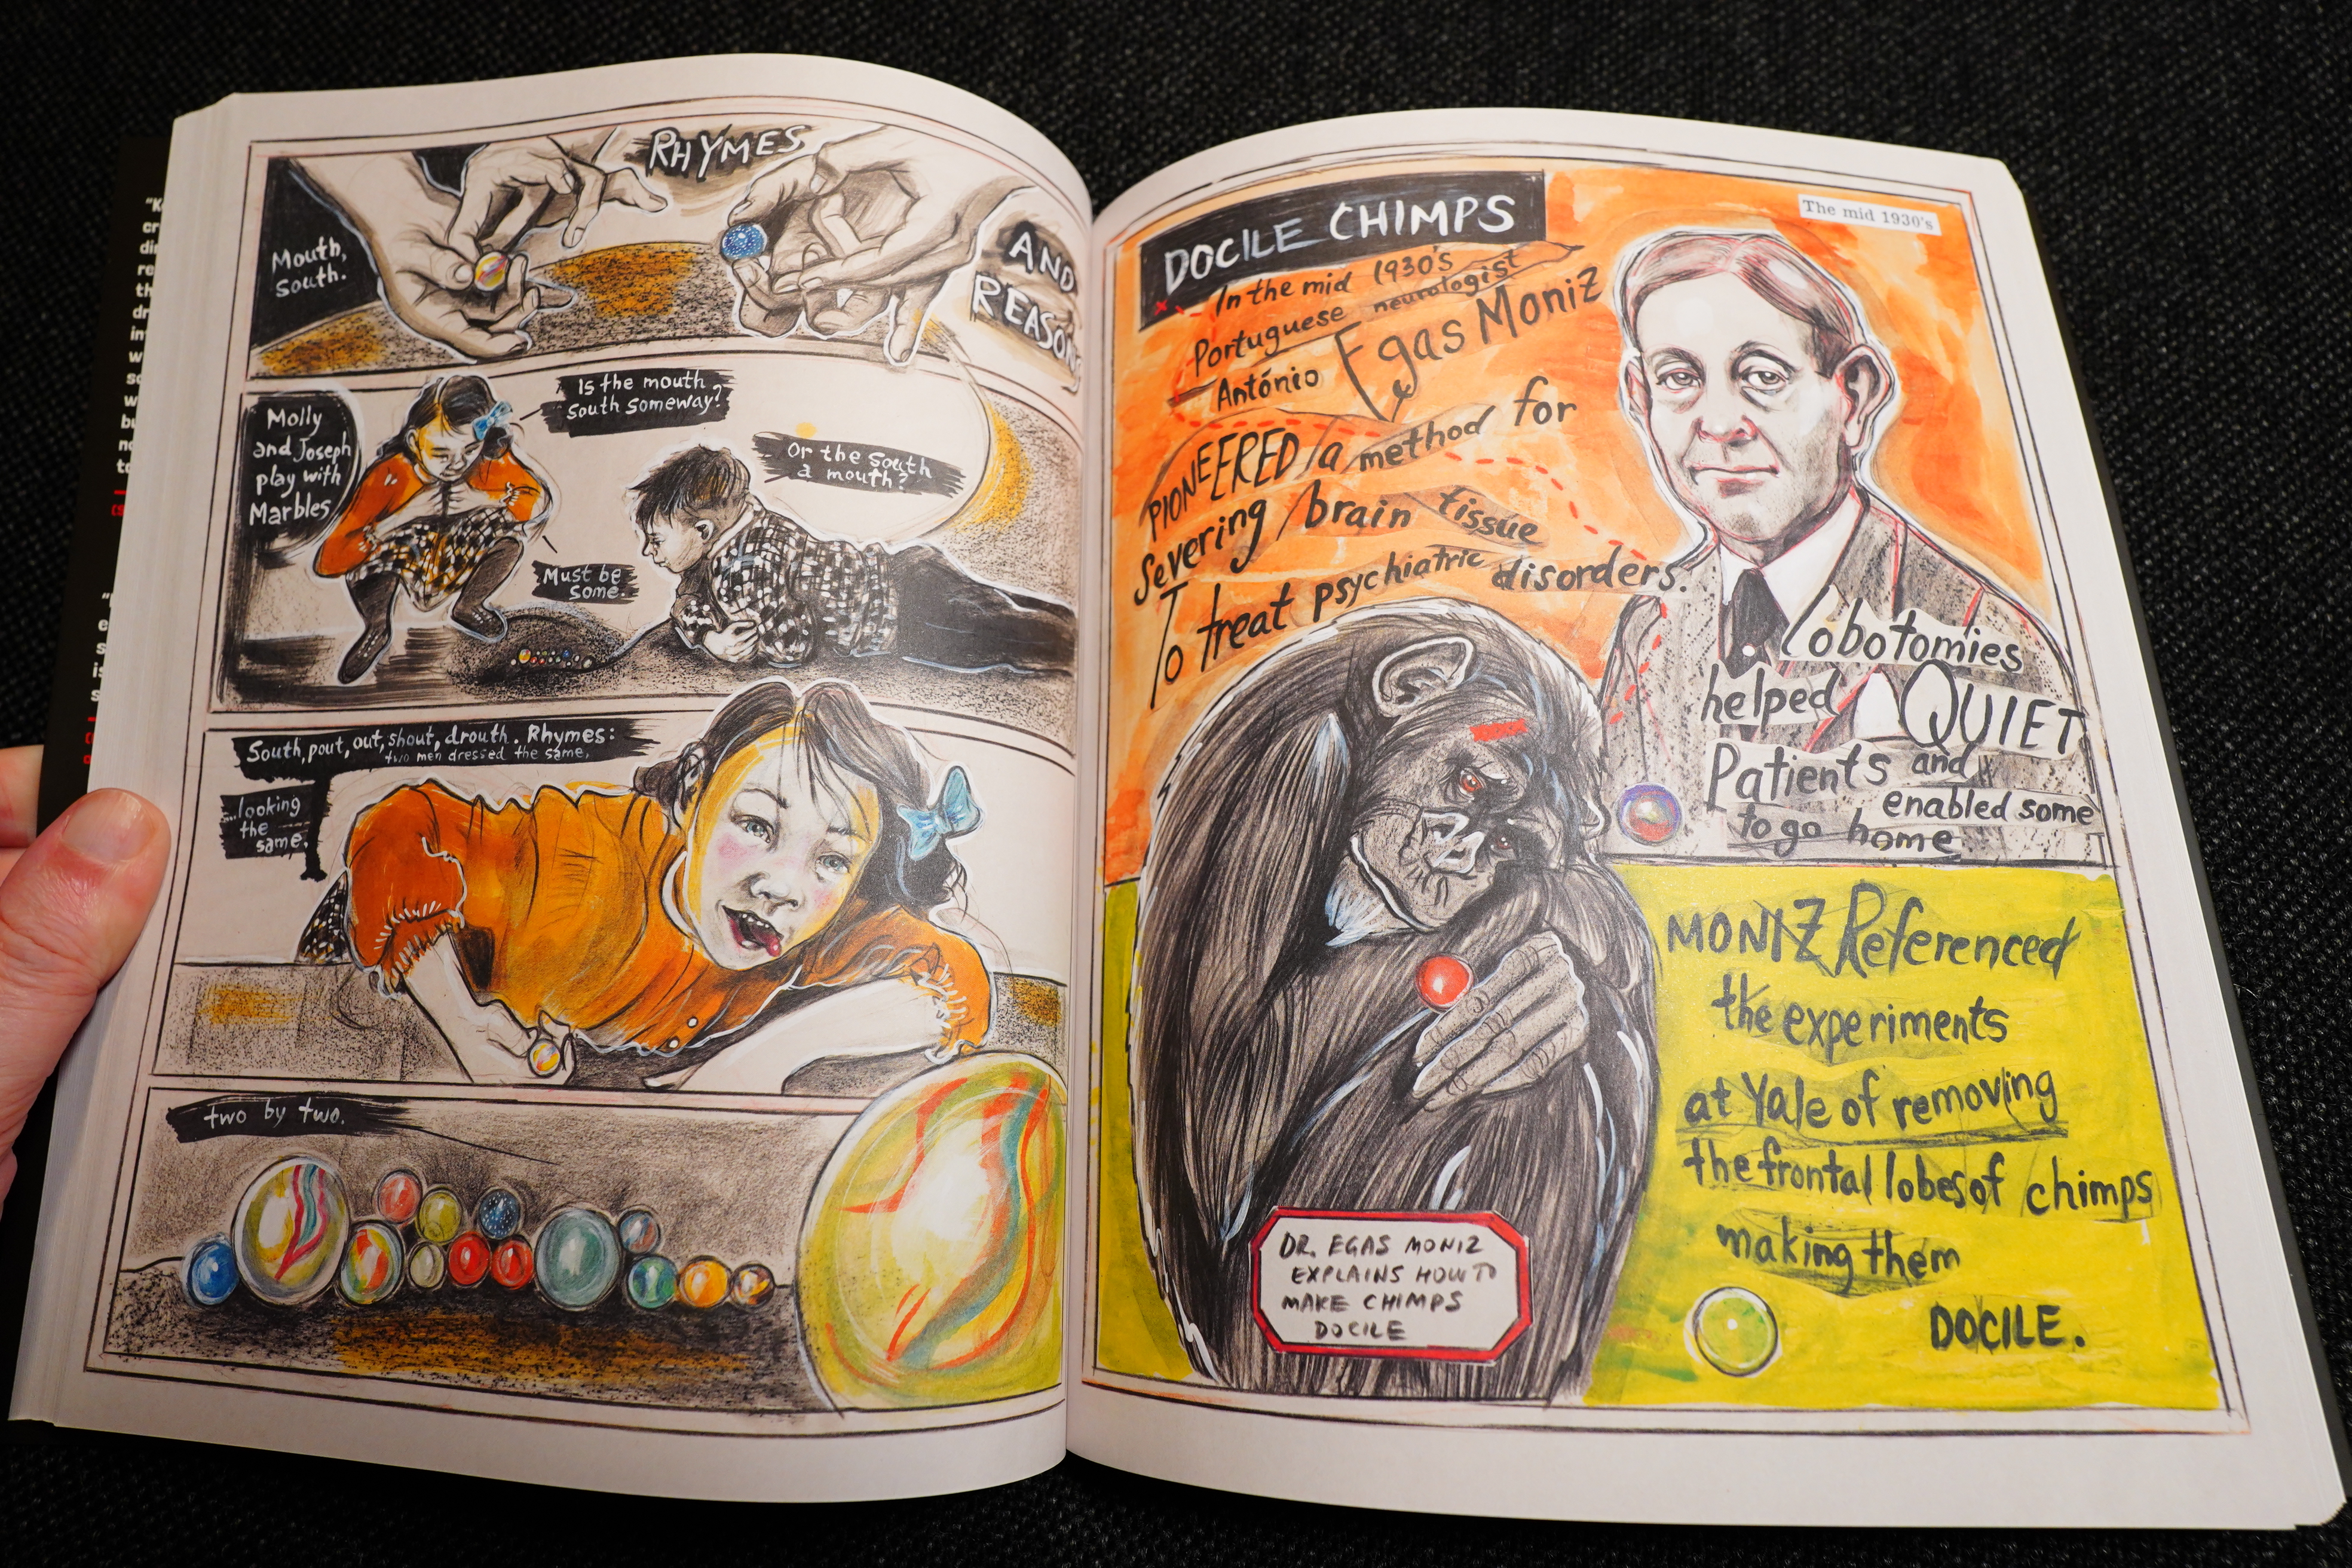 RHYMES
AND
REASON
Mouth,
South.
Molly
and Joseph
play with
Marbles
Is the mouth
south someway?
Or the south
a mouth?
Must be
some.
South, pout, out, shout, drouth. Rhymes:
two men dressed the same,
...looking
the
same.
two by two.
DOCILE CHIMPS
The mid 1930's
In the mid 1930's
Portuguese neurologist
António Egas Moniz
PIONEERED a method for
severing brain tissue
To treat psychiatric disorders.
Lobotomies
helped QUIET
Patients and
enabled some
to go home
MONIZ Referenced
the experiments
at Yale of removing
the frontal lobes of chimps
making them
DOCILE.
DR. EGAS MONIZ
EXPLAINS HOW TO
MAKE CHIMPS
DOCILE